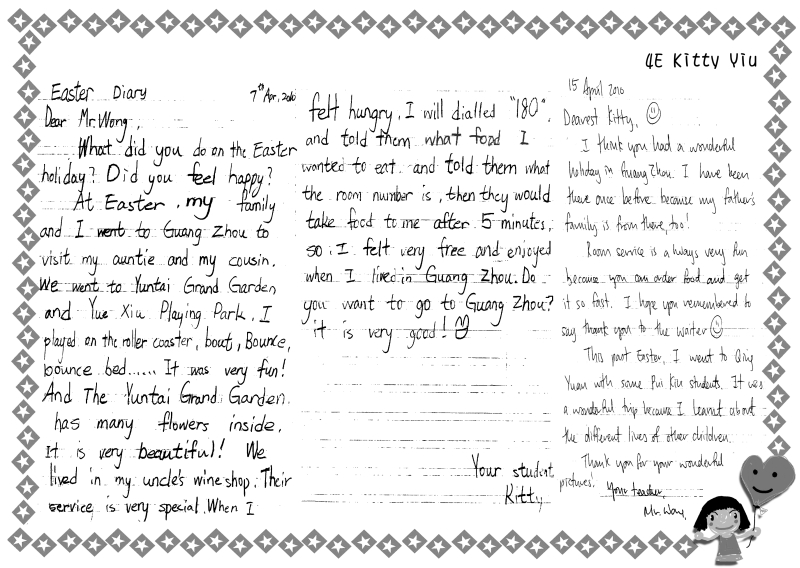 4E Kitty Yiu
Easter Diary
7th Apr, 2010
Dear Mr. Wong,
What did you do on the Easter
holiday? Did you feel happy?
At Easter, my family
and I went to Guang Zhou to
visit my auntie and my cousin.
We went to Yuntai Grand Garden
and Yue Xiu Playing Park. I
played on the roller coaster, bout, Bounce,
bounce bed...... It was very fun!
And The Yuntai Grand Garden
has many flowers inside.
It is very beautiful! We
lived in my uncle's wine shop. Their
service is very special. When I
felt hungry, I will dialled "180".
and told them what food I
wanted to eat. and told them what
the room number is, then they would
take food to me after 5 minutes,
so, I felt very free and enjoyed
when I lived in Guang Zhou. Do
you want to go to Guang Zhou?
it is very good!
Your student
Kitty
15 April 2010
Dearest Kitty,
I think you had a wonderful
holiday in Guang Zhou. I have been
there once before because my father's
family is from there, too!
Room service is always very fun
because you can order food and get
it so fast. I hope you remembered to
say thank you to the waiter
This past Easter, I went to Qing
Yuan with some Pui Kiu students. It was
a wonderful trip because I learnt about
the different lives of other children.
Thank you for your wonderful
pictures!
Your teacher,
Mr. Wong